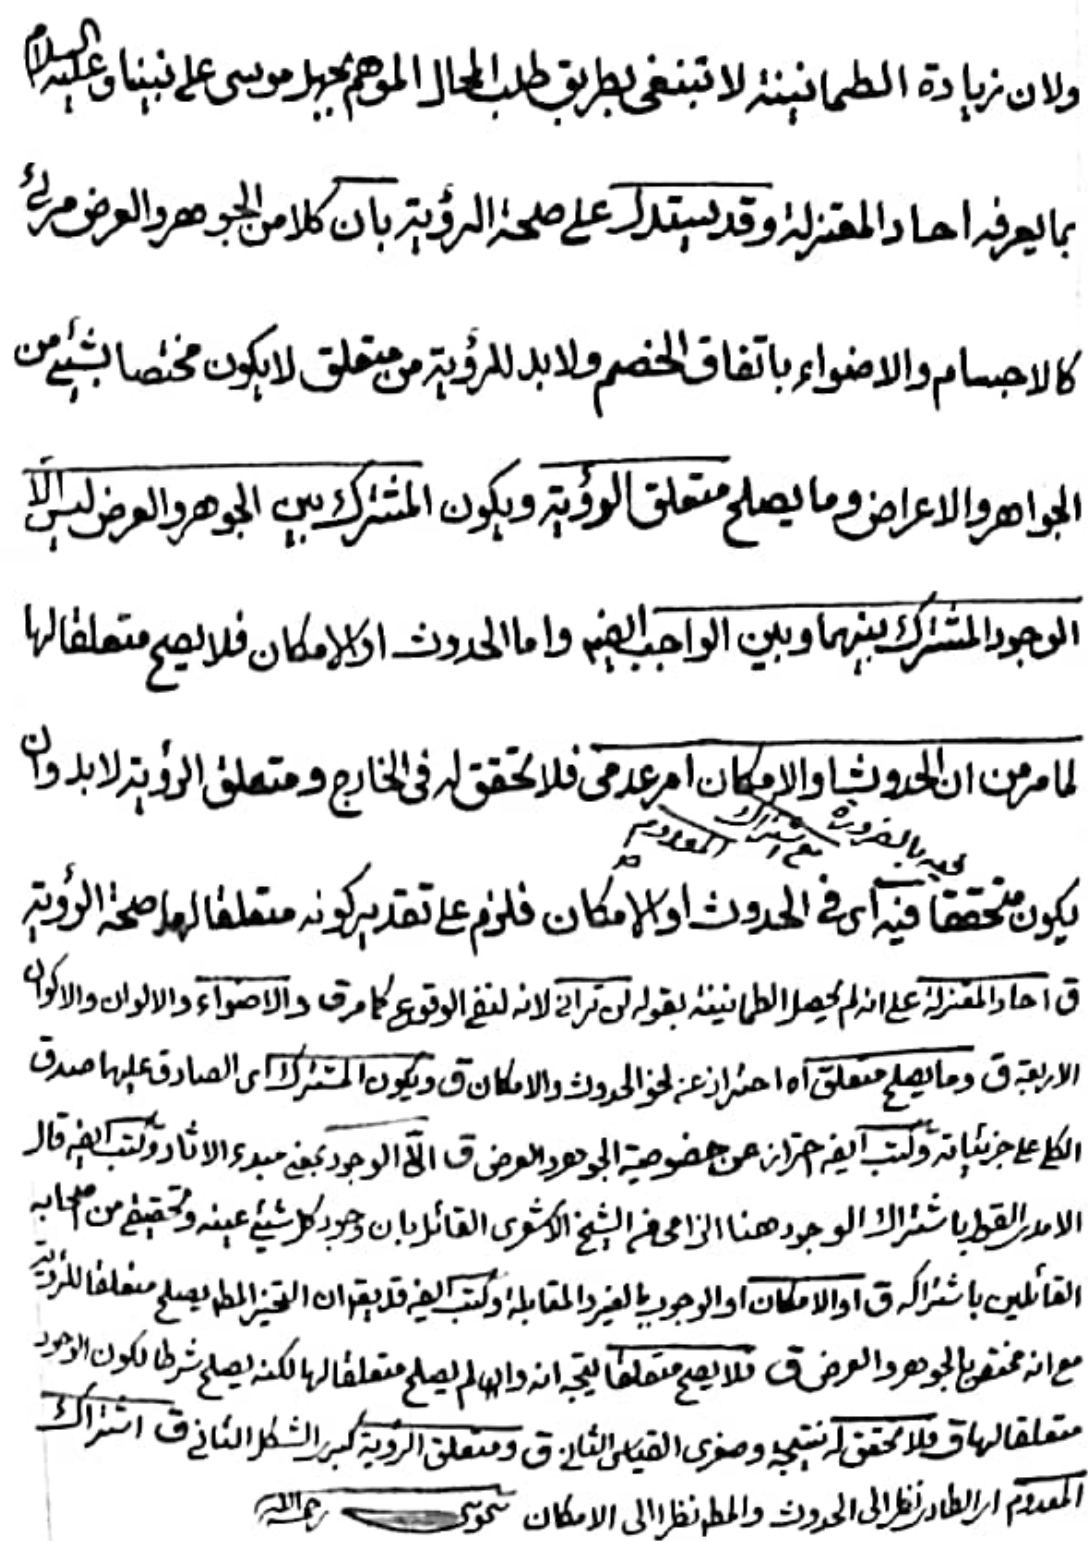 ولان زيادة الطمانينة لا تبتغى بطريق طلب المحال الموهم بجهل موسى على نبينا وعليه السلام
بما يعرفه احاد المعتزلة وقد يستدل على صحة الرؤية بان كلا من الجوهر والعرض مرئى
كالاجسام والاضواء باتفاق الخصم ولا بد للرؤية من متعلق لا يكون مختصا بشيئ من
الجواهر والاعراض وما يصلح متعلق الرؤية ويكون المشترك بين الجوهر والعرض ليس الا
الوجود المشترك بينهما وبين الواجب ايضا واما الحدوث او الامكان فلا يصح متعلقا لها
لما مر من ان الحدوث او الامكان امر عدمى فلا تحقق له فى الخارج ومتعلق الرؤية لا بد وان
بالضرورة مع اشتراك المعدوم
يكون متحققا فيه اى فى الحدوث او الامكان فلزم على تقدير كونه متعلقا لها صحة الرؤية
ق احاد المعتزلة على انه لم يحصل الطمانينة بقوله لن ترانى لانه لنفى الوقوع كما مر ق والاضواء والالوان والاكوان
الاربعة ق وما يصلح متعلق اه احتراز عن نحو الحدوث والامكان ق ويكون المشترك اى الصادق عليها صدق
الكلى على جزئياته وكتب ايضا احتراز عن خصوصية الجوهر والعرض ق الا الوجود بمعنى مبدء الاثار وكتب ايضا قال
الامدى القول باشتراك الوجود هنا الزامى من الشيخ الاشعرى القائل بان وجود كل شيئ عينه وتحقيقى من اصحابه
القائلين باشتراكه ق او الامكان او الوجوب بالغير والمقابلة وكتب ايضا قد يقال ان التحيز المطلق يصلح متعلقا للرؤية
مع انه مختص بالجوهر والعرض ق فلا يصح متعلقا يتجه انه وان لم يصلح متعلقا لها لكنه يصلح شرطا لكون الوجود
متعلقا لها ق فلا تحقق له نتيجة وصغرى القياس الثانى ق ومتعلق الرؤية كبرى الشكل الثانى ق اشتراك
المعدوم اى الطارى نظرا الى الحدوث والمطلق نظرا الى الامكان رحمه الله